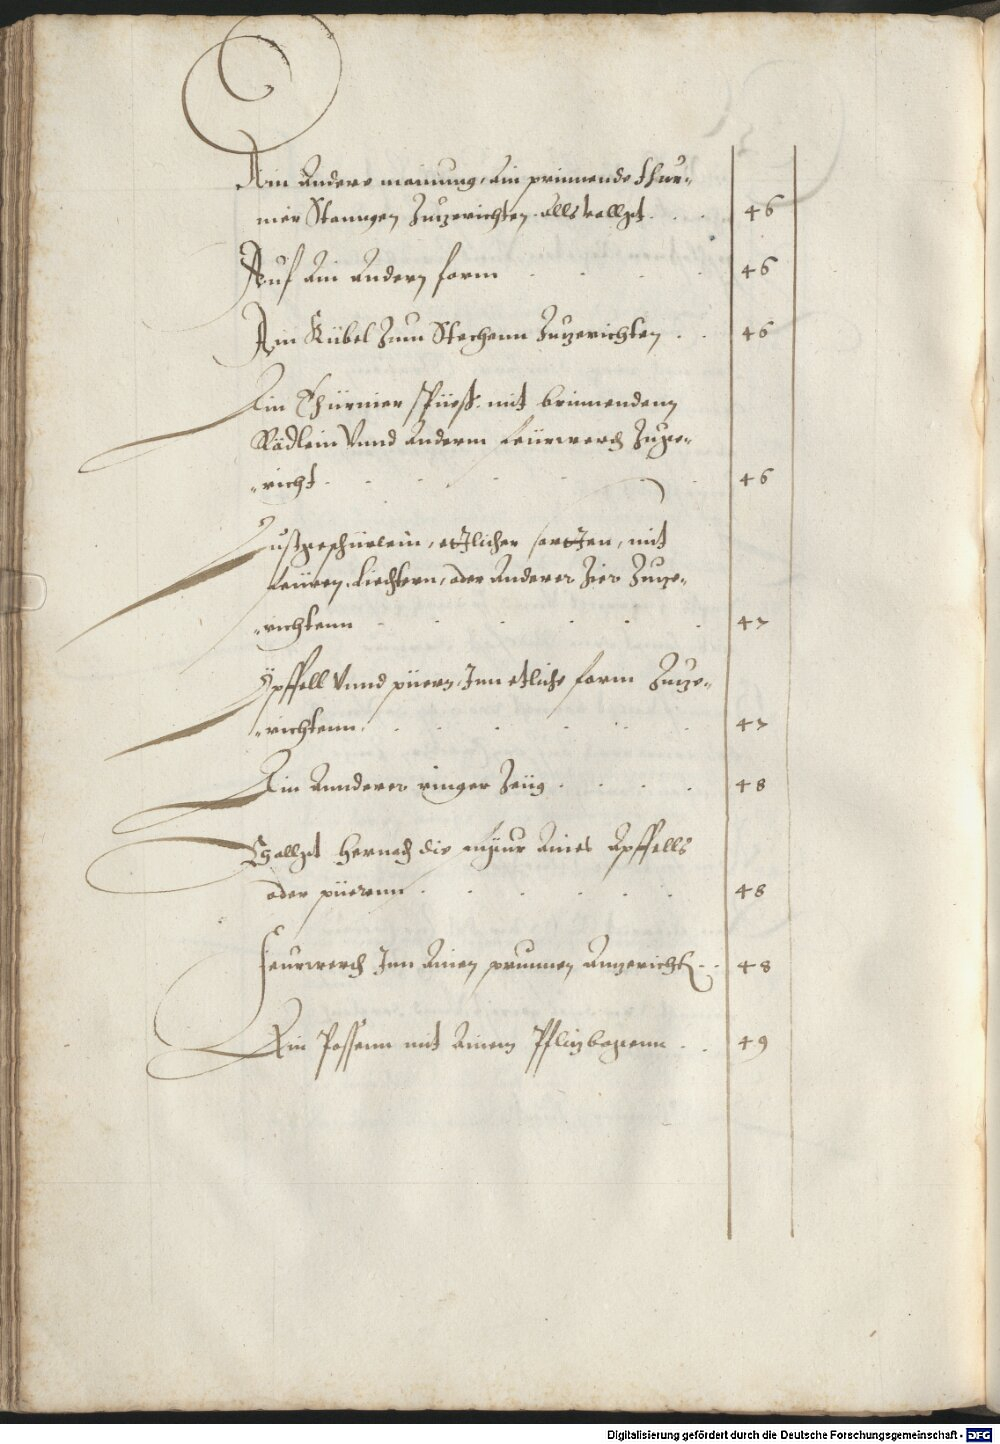 Ain andere mainung, ain prinnende thur-
nier Stanngen Zuzerichten . . . 46
Auf ain andern form . . . 46
Ain Kübel Zum Stechenn Zuzerichten . . 46
Ain Thurnier spüeß mit brinnendem
Rädlein Vnnd anderm feürwerch Zuge-
-richt . . . 46
etlicher sortten, mit
feüren, liechtern, oder anderer Zier Zuze-
-richtenn . . . 47
Öpffell Vnnd püern, Inn etliche form Zuze-
-richtenn . . . 47
Ain annderer ringer Zeüg . . . 48
Vollgt hernach die figur aines Apffells
oder püerenn . . . 48
Feurwerch Inn ainen prunnen Angericht . . 48
Ain Possenn mit ainem Pflizbogenn . . 49
Digitalisierung gefördert durch die Deutsche Forschungsgemeinschaft - DFG